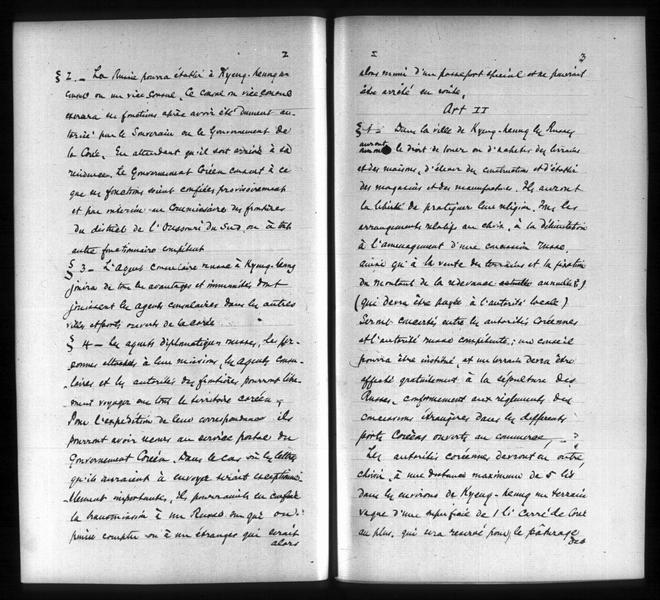 2
§ 2. — La Russie pourra établir à Kyeng-heung un
consul ou un vice consul. Ce consul ou vice consul
entrera en fonctions après avoir été dument au-
torisé par le Souverain ou le Gouvernement de
la Corée. En attendant qu'il soit arrivé à sa
résidence, le Gouvernement Coréen consent à ce
que ses fonctions soient confiées provisoirement
et par interim au Commissaire des frontières
du district de l'Oussouri du Sud, ou à tout
autre fonctionnaire compétent
§ 3 — L'Agent consulaire russe à Kyeng-heung
jouira de tous les avantages et immunités dont
jouissent les agents consulaires dans les autres
villes et ports ouverts de la Corée
§ 4 — Les agents diplomatiques russes, les per-
sonnes attachées à leur mission, les agents consu-
laires et les autorités des frontières, pourront libre-
ment voyager sur tout le territoire coréen.
Pour l'expédition de leur correspondance ils
pourront avoir recours au service postal du
Gouvernement Coréen. Dans le cas où les lettres
qu'ils auraient à envoyer seraient exceptionnel-
lement importantes, ils pourraient en confier
la transmission à un Russe sur qui on
puisse compter ou à un étranger qui serait
alors
3
alors muni d'un passeport spécial et ne pourrait
être arrêté en route.
Art II
§ 1 — Dans la ville de Kyeng-heung les Russes
auront le droit de louer ou d'acheter des terrains
et des maisons, d'élever des constructions et d'établir
des magasins et des manufactures. Ils auront
la liberté de pratiquer leur religion. Tous les
arrangements relatifs au choix, à la délimitation
à l'aménagement d'une concession russe,
ainsi qu'à la vente des terrains et la fixation
du montant de la redevance annuelle
(qui devra être payée à l'autorité locale)
seront concertés entre les autorités Coréennes
et l'autorité russe compétente; un conseil
pourra être institué, et un terrain devra être
affecté gratuitement à la sépulture des
Russes, conformément aux règlements des
concessions étrangères dans les différents
ports Coréens ouverts au commerce. — ?
Les autorités coréennes devront en outre
choisir, à une distance maximum de 5 lis
dans les environs de Kyeng-heung un terrain
vague d'une superficie de 1 li carré de Corée
au plus, qui sera reservé pour le pâturage
des